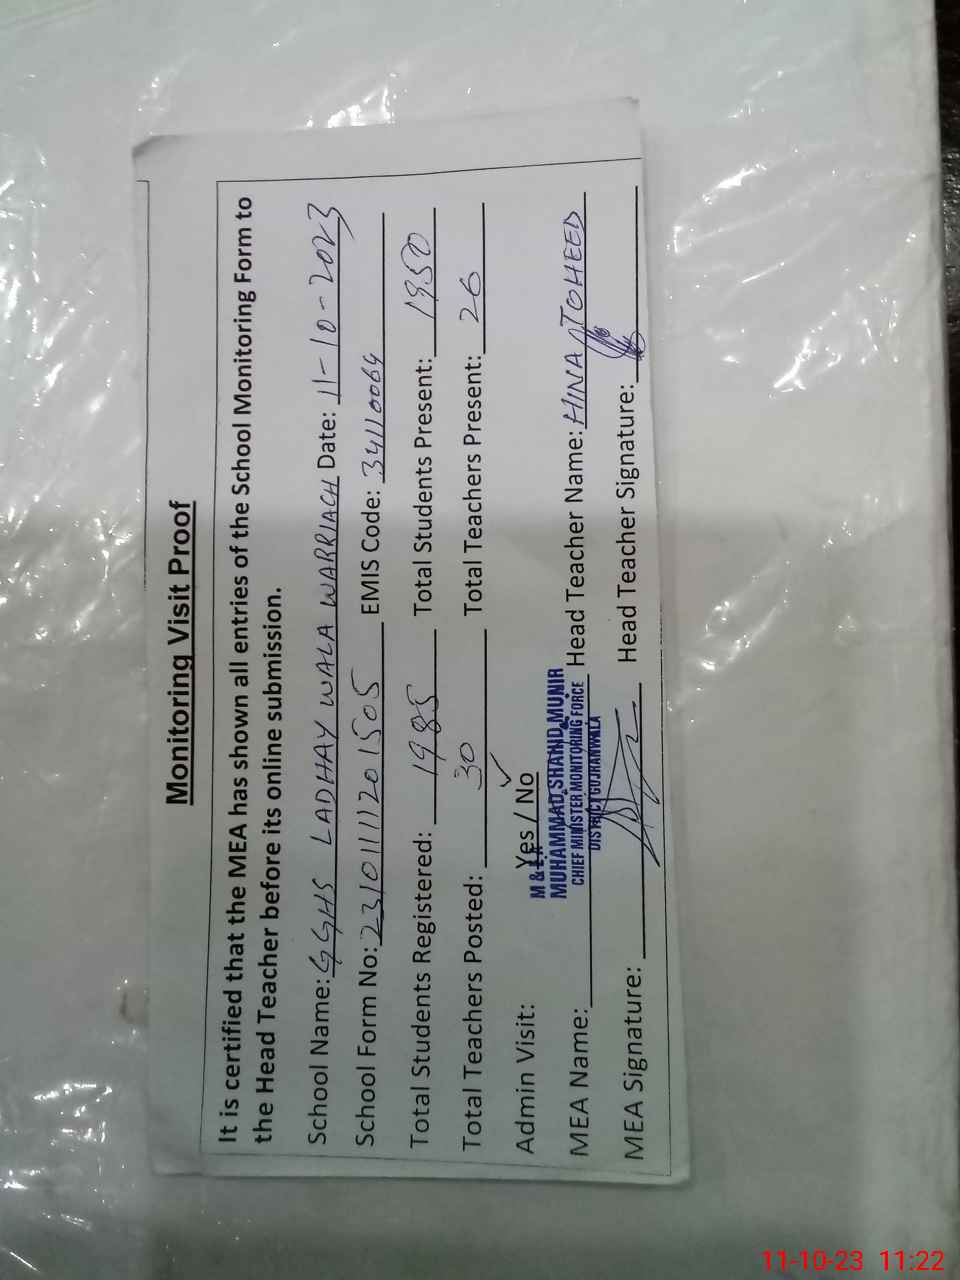 Monitoring Visit Proof
It is certified that the MEA has shown all entries of the School Monitoring Form to
the Head Teacher before its online submission.
School Name: GGHS LADHAY WALA WARRIACH Date: 11-10-2023
School Form No: 231011111201505 EMIS Code: 34110064
Total Students Registered: 1985 Total Students Present: 1950
Total Teachers Posted: 30 Total Teachers Present: 26
Admin Visit: Yes / No ✓
M &
MUHAMMAD SHAHID MUNIR
MEA Name: CHIEF MINISTER MONITORING FORCE Head Teacher Name: HINA TOHEED
DISTRICT GUJRANWALA
MEA Signature: Head Teacher Signature:
11-10-23 11:22